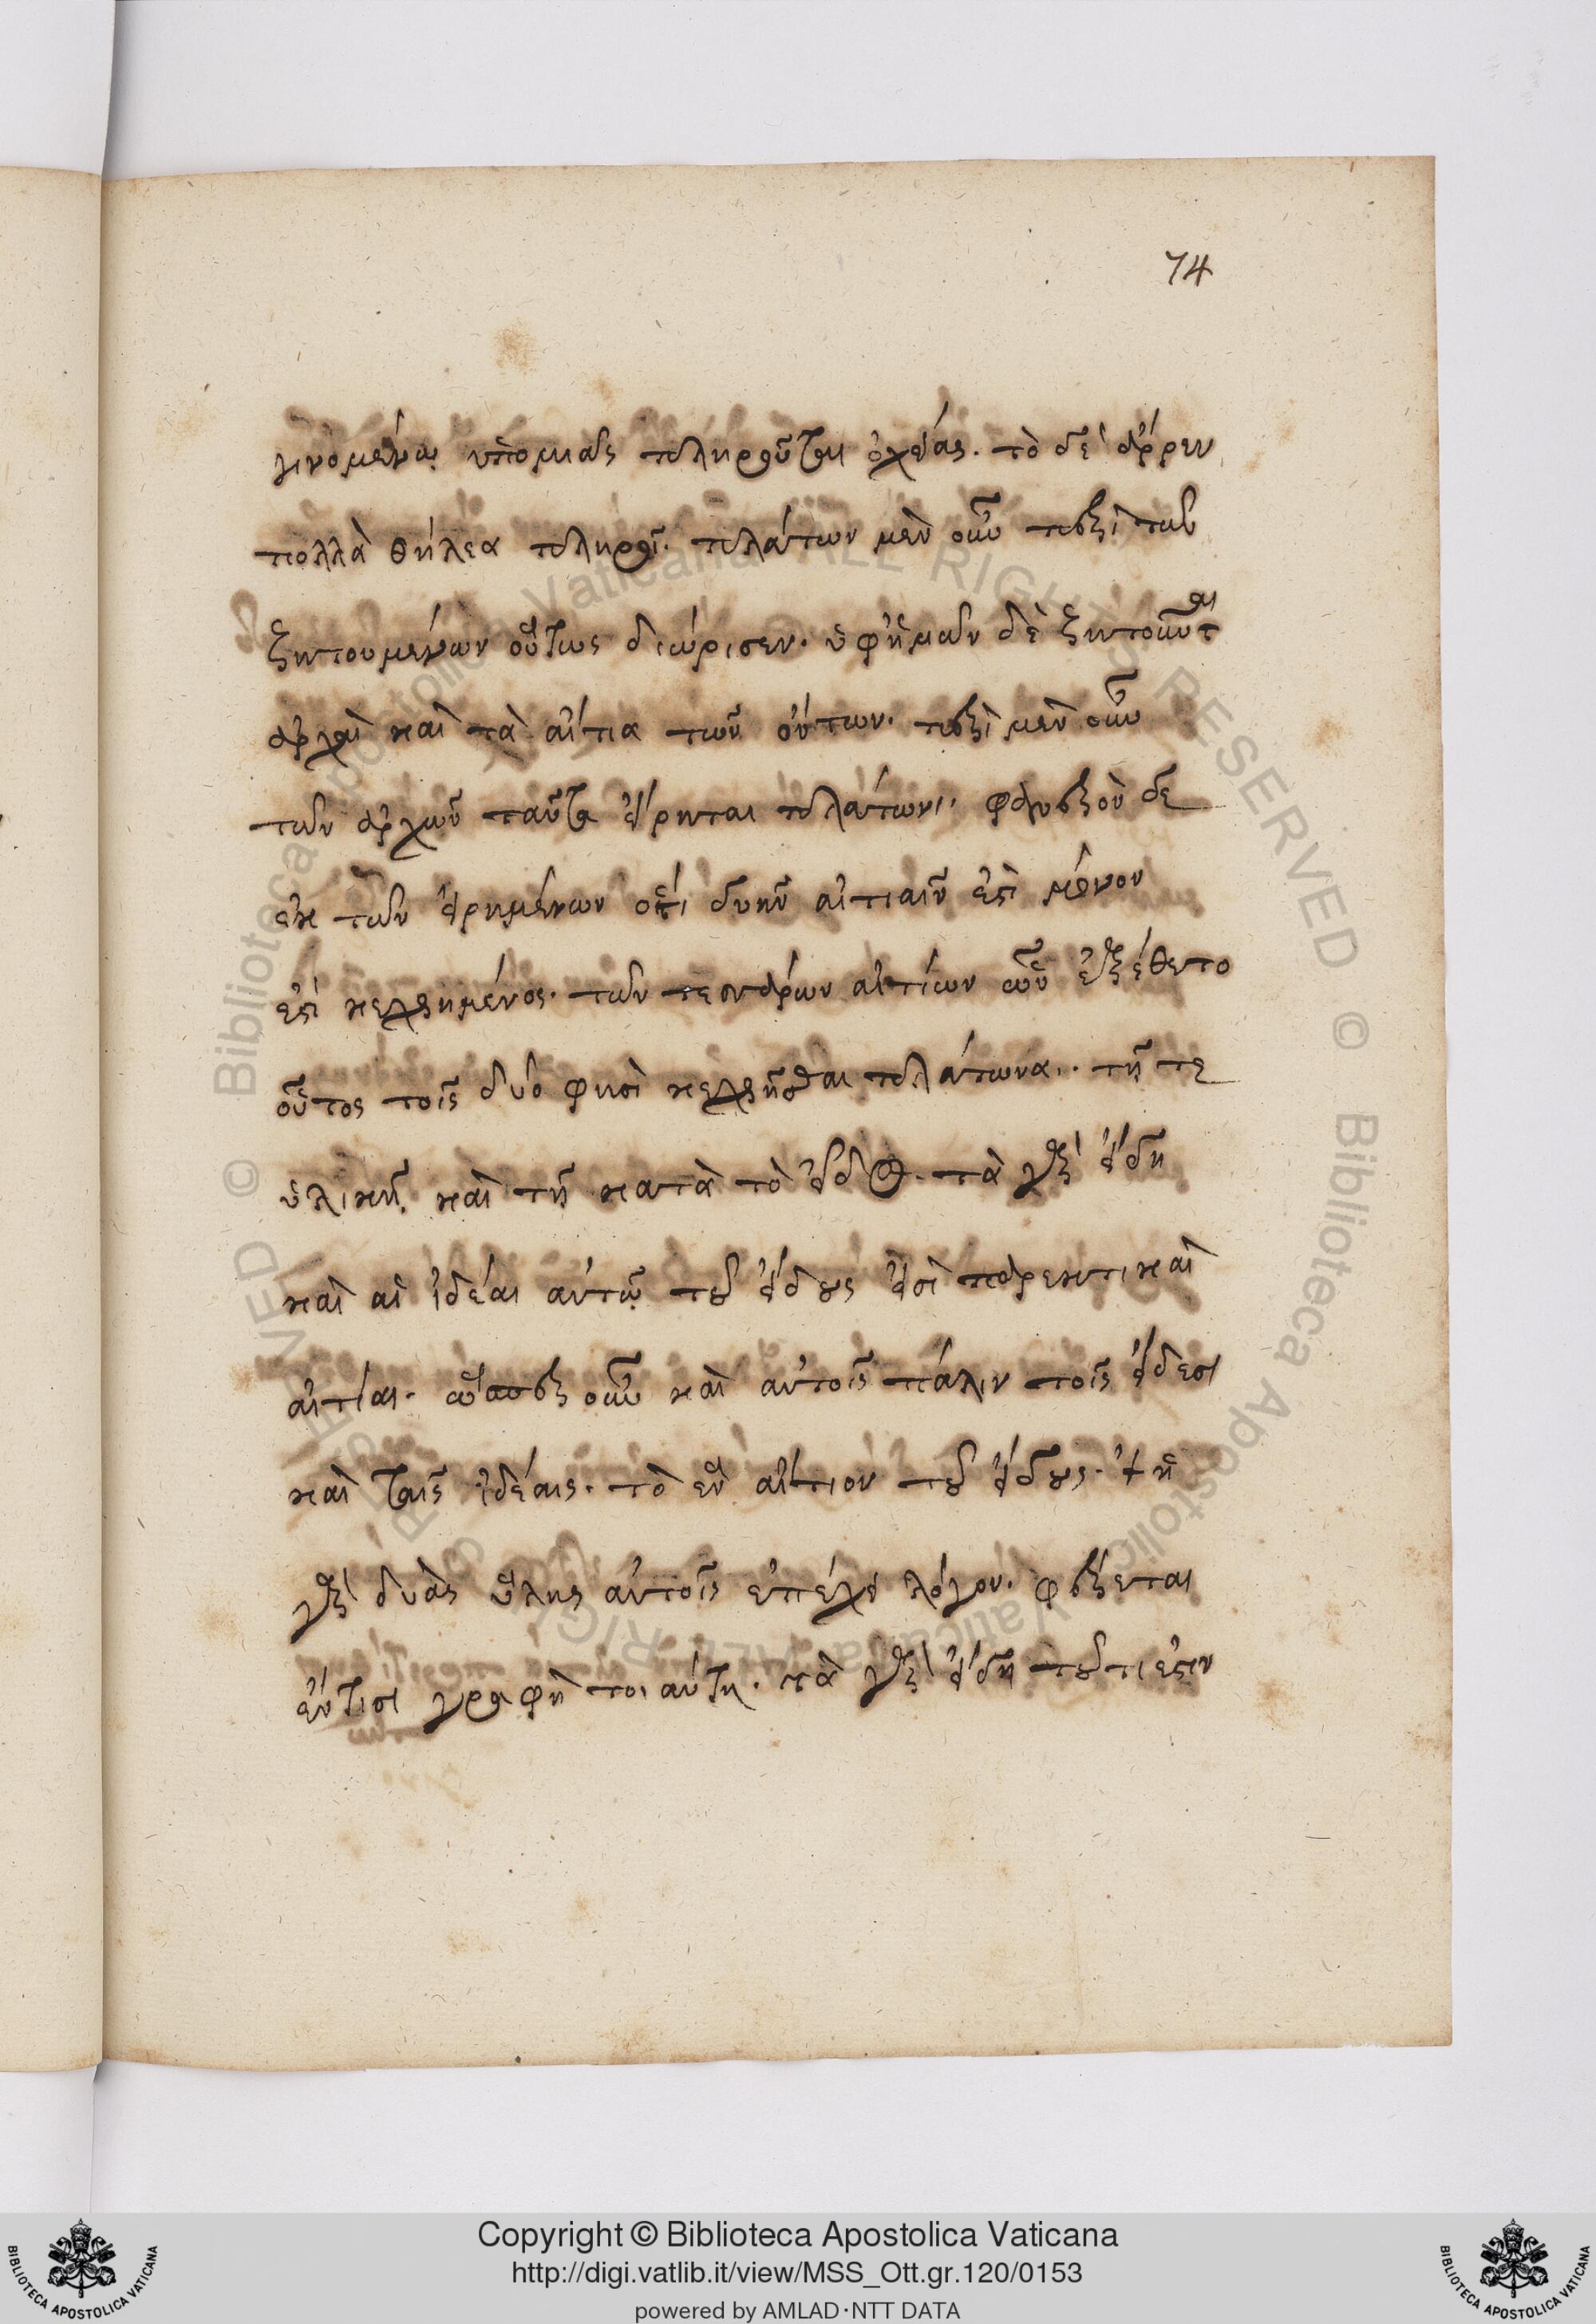 74
γινομένῳ ὑπὸ μιᾶς πληροῦται ὀχείας. τὸ δὲ ἄρρεν
πολλὰ θήλεα πληροῖ. πλάτων μὲν οὖν περὶ τῶν
ζητουμένων οὕτως διώρισεν. ὑφ' ἡμῶν δὲ ζητοῦνται
ἀρχαὶ καὶ τὰ αἴτια τῶν ὄντων. περὶ μὲν οὖν
τῶν ἀρχῶν ταῦτα εἴρηται πλάτωνι. φανερὸν δὲ
ἐκ τῶν εἰρημένων ὅτι δυεῖν αἰτίαιν ἐστὶ μόνον
ἐστὶ κεχρημένος. τῶν τεσσάρων αἰτίων ὧν ἐξέθετο
οὗτος τοῖς δύο φησὶ κεχρῆσθαι πλάτωνα. τῇ τε
ὑλικῇ καὶ τῇ κατὰ τὸ εἶδος. τὰ γὰρ εἴδη
καὶ αἱ ἰδέαι αὐτῷ τοῦ εἴδους εἰσὶ παρεκτικαὶ
αἰτίαι. ὥσπερ οὖν καὶ αὐτοῖς πάλιν τοῖς εἴδεσι
καὶ ταῖς ἰδέαις. τὸ ἓν αἴτιον τοῦ εἴδους. ἡ
γὰρ δυὰς ὕλης αὐτοῖς ἐπέχει λόγον. φέρεται
ἔν τισι γραφὴ τοιαύτη. τὰ γὰρ εἴδη τοῦ τί ἐστιν
© Biblioteca Apostolica Vaticana ALL RIGHTS RESERVED © Biblioteca Apostolica Vaticana ALL RIGHTS RESERVED
Copyright © Biblioteca Apostolica Vaticana
http://digi.vatlib.it/view/MSS_Ott.gr.120/0153
powered by AMLAD·NTT DATA
BIBLIOTECA APOSTOLICA VATICANA
BIBLIOTECA APOSTOLICA VATICANA